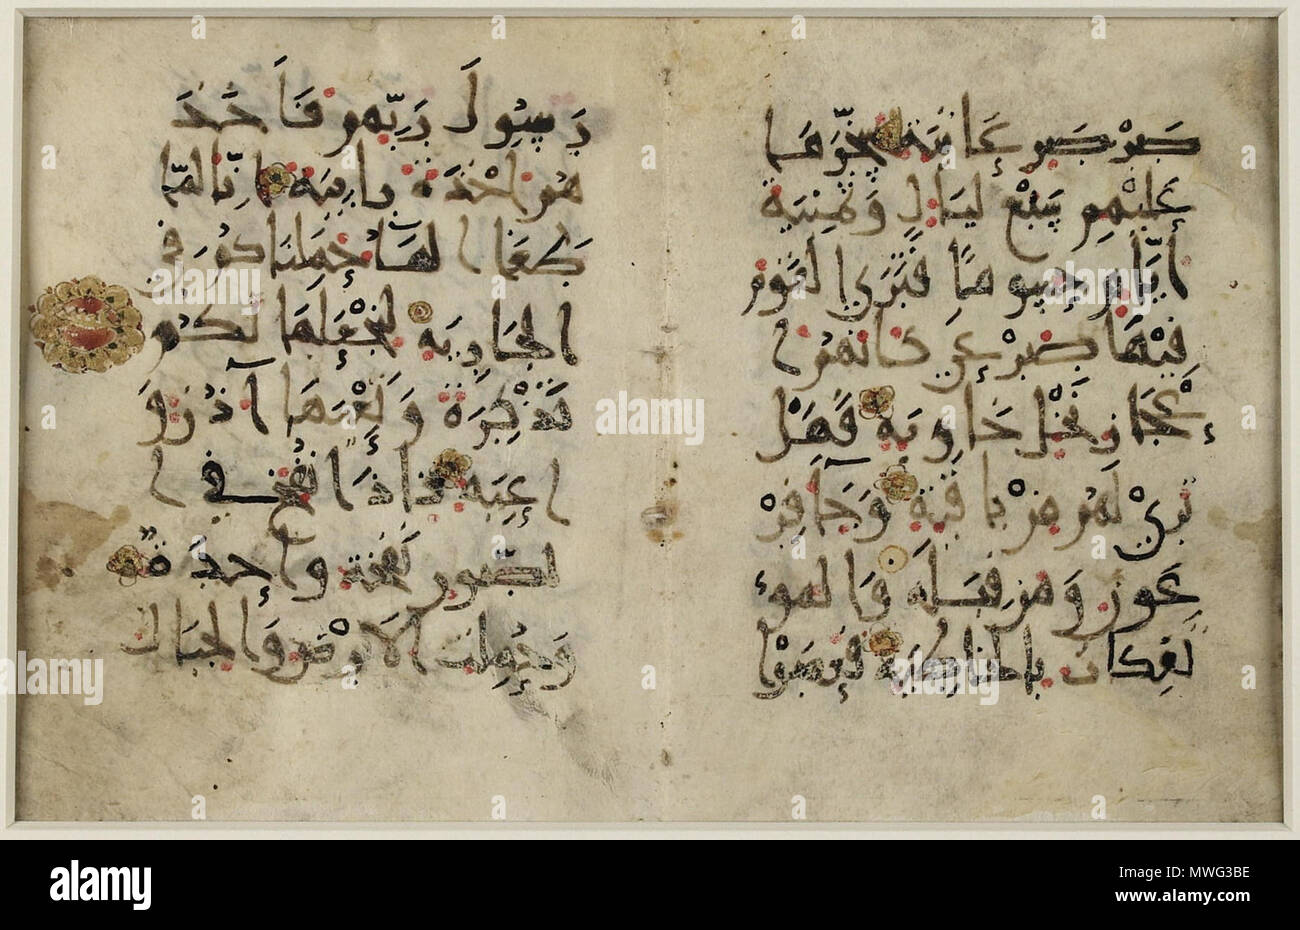 صرصر عاتية سخرها
عليهم سبع ليال وثمنية
ايام حسوما فترى القوم
فيها صرعى كانهم ا
عجاز نخل خاوية فهل
ترى لهم من باقية وجا فر
عون ومن قبله والمو
تفكات بالخاطية فعصوا
رسول ربهم فاخذ
هم اخذة رابية انا لما
طغا ا لما حملناكم في
الجارية لنجعلها لكم
تذكرة وتعيها اذن و
اعية فاذا نفخ في ا
لصور نفخة واحدة
وحملت الارض والجبال
alamy
alamy
Image ID: MWG3BE
www.alamy.com